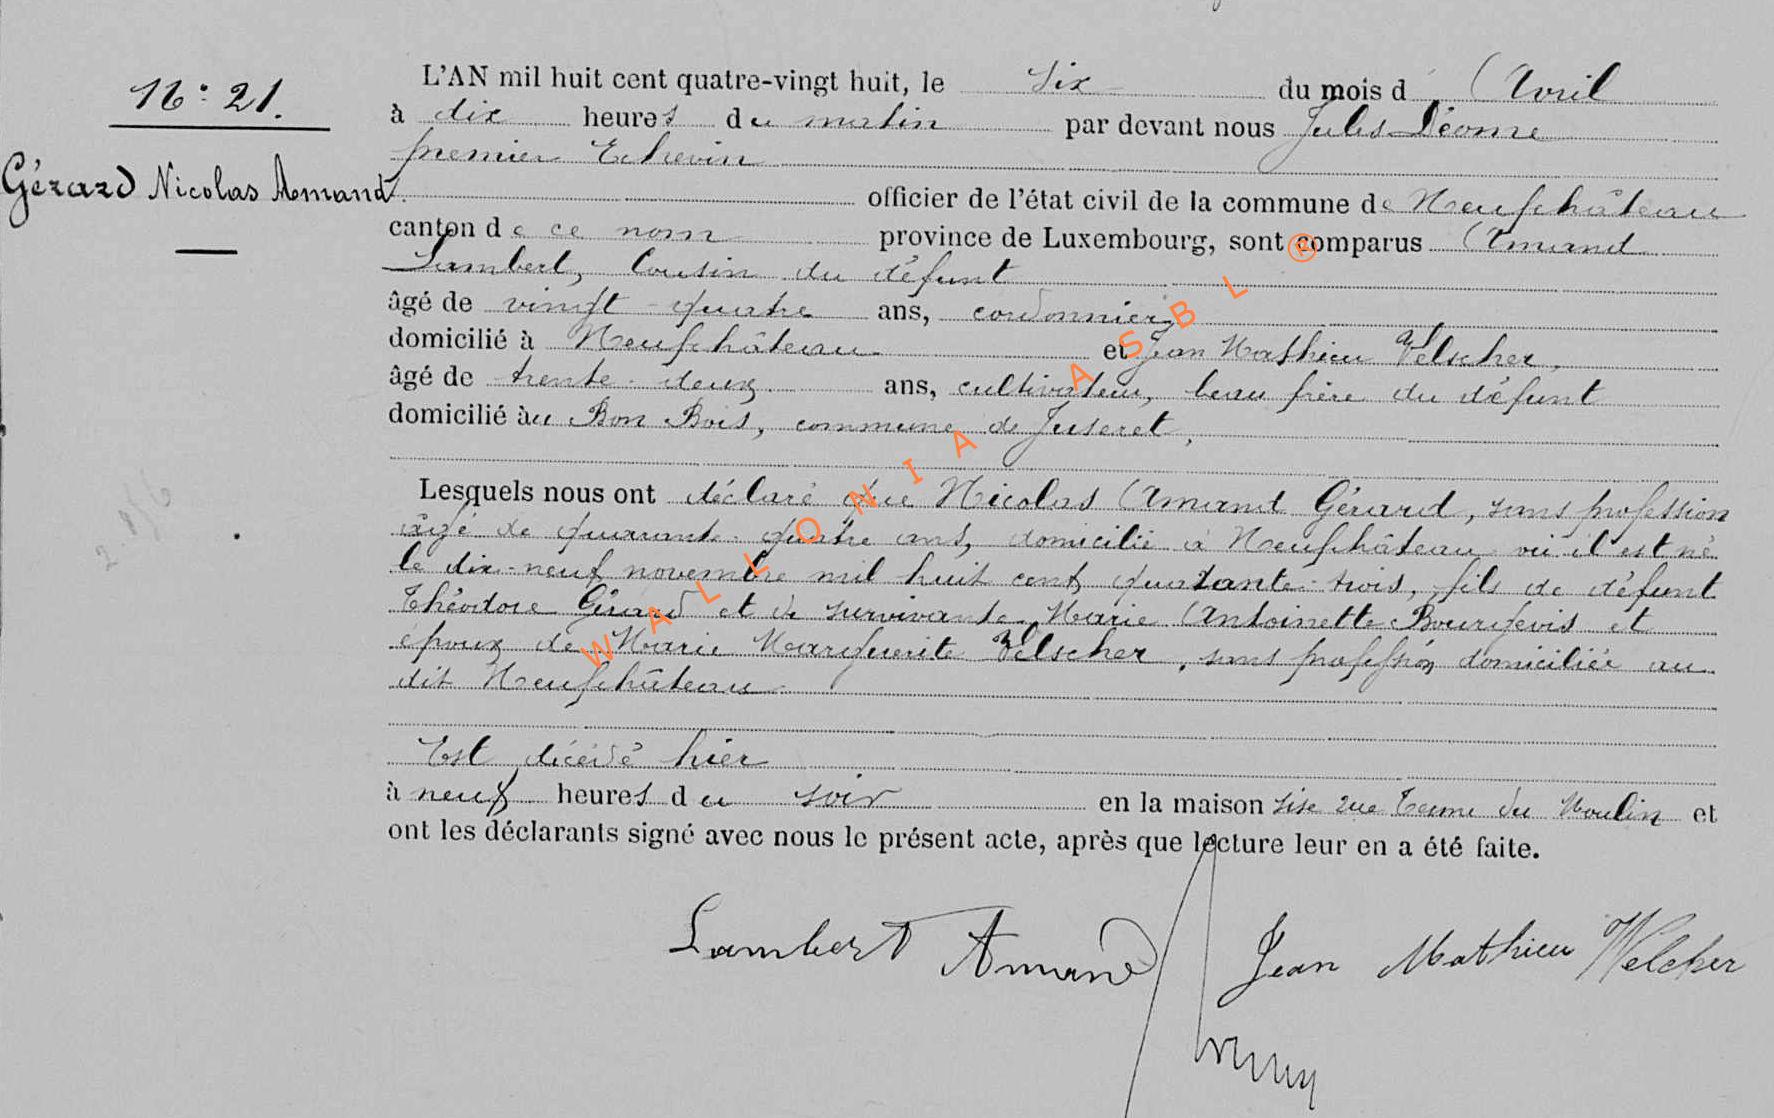 N° 21.
Gérard Nicolas Amand
L'AN mil huit cent quatre-vingt huit, le six du mois d Avril
à dix heures du matin par devant nous Jules Déome
premier Echevin
officier de l'état civil de la commune de Neufchâteau
canton de ce nom province de Luxembourg, sont comparus Amand
Lambert, Cousin du défunt
âgé de vingt-quatre ans, cordonnier,
domicilié à Neufchâteau et Jean Mathieu Welscher,
âgé de trente-deux ans, cultivateur, beau frère du défunt
domicilié au Bon Bois, commune de Juseret,
Lesquels nous ont déclaré que Nicolas Amand Gérard, sans profession
âgé de quarante-quatre ans, domicilié à Neufchâteau où il est né
le dix-neuf novembre mil huit cent quarante-trois, fils de défunt
Théodore Gérard et de survivante Marie Antoinette et
époux de Marie Marguerite Welscher, sans profession domiciliée au
dit Neufchâteau
Est décédé hier
à neuf heures du soir en la maison sise rue Terme du Moulin et
ont les déclarants signé avec nous le présent acte, après que lecture leur en a été faite.
Lambert Amand
Jean Mathieu Welcher
WALLONIA ASBL ®